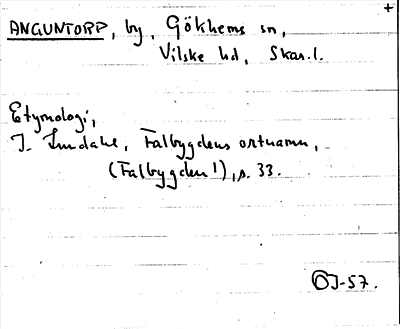 +
ANGUNTORP, by, Gökhems sn,
Vilske hd, Skar.l.
Etymologi,
I. Lundahl, Falbygdens ortnamn,
(Falbygden 1), s. 33.
OJ-57.